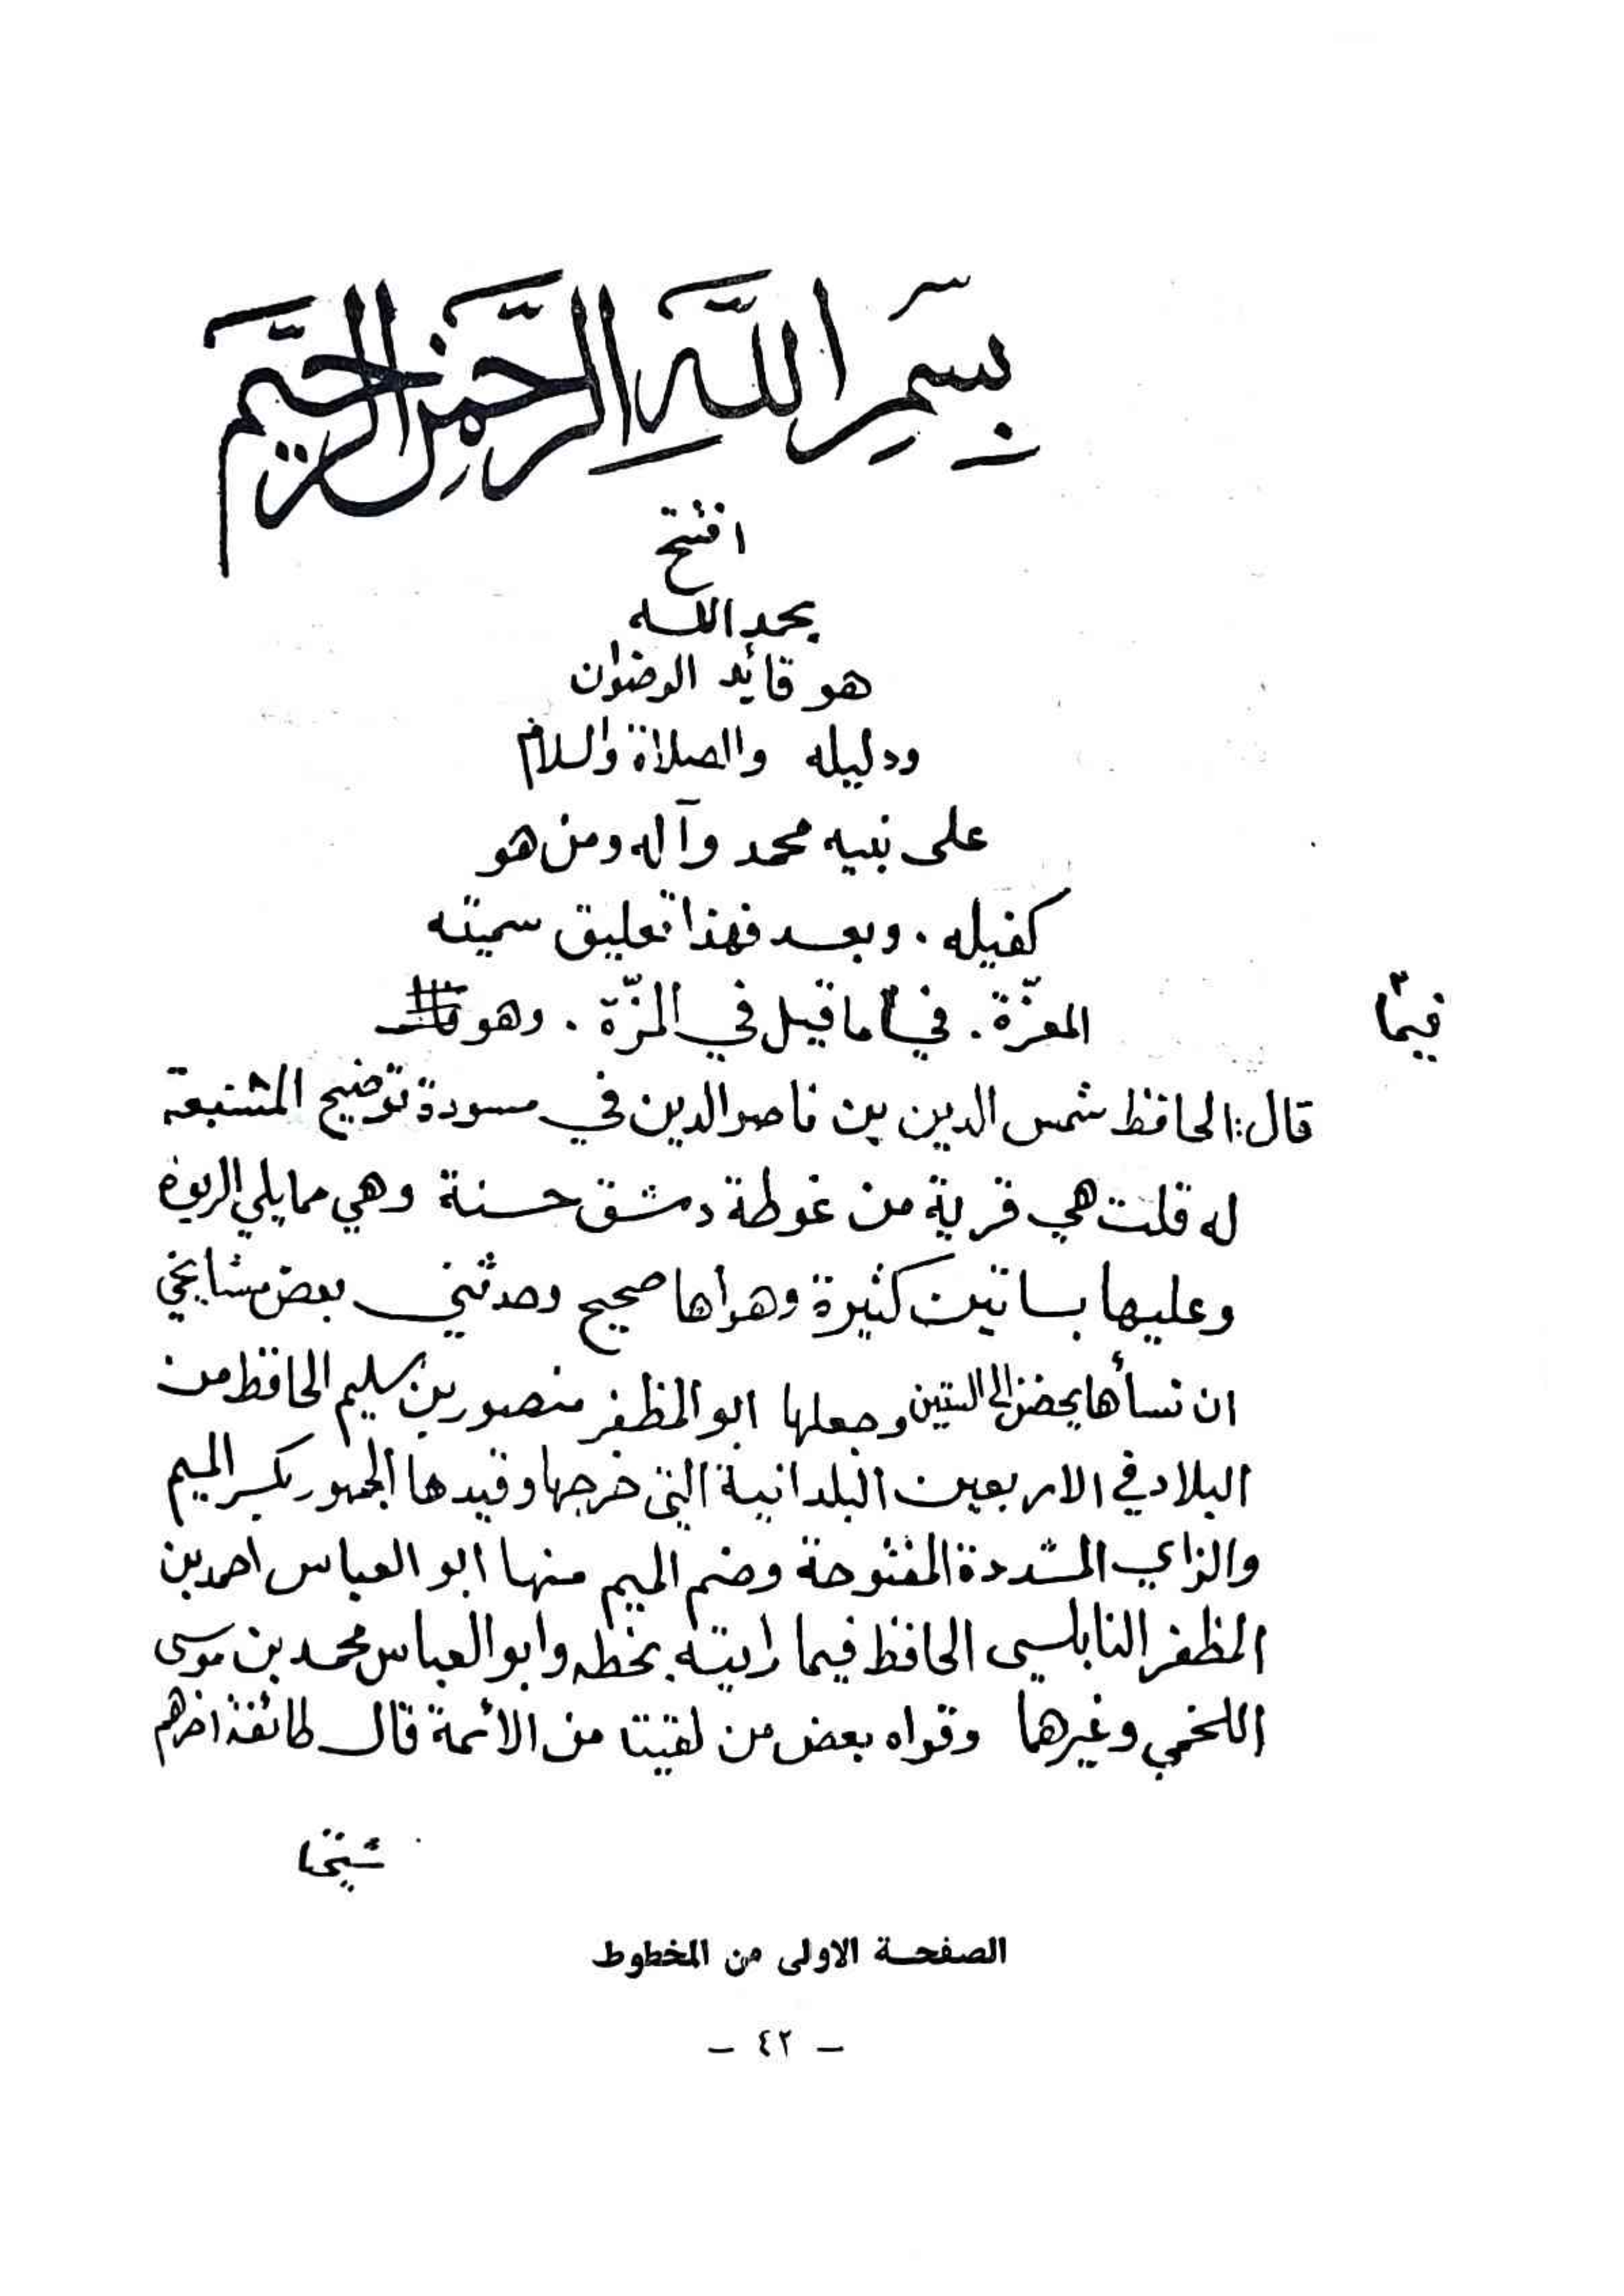 بِسْمِ اللَّهِ الرَّحْمَنِ الرَّحِيمِ
افتتح
بحمد الله
هو قائد الرضوان
ودليله والصلاة والسلام
على نبيه محمد وآله ومن هو
كفيله . وبعد فهذا تعليق سميته
المعزّة . في ما قيل في المزّة . وهو
فيما
قال : الحافظ شمس الدين بن ناصر الدين في مسودة توضيح المشتبه
له قلت هي قرية من غوطة دمشق حسنة وهي مما يلي الربوة
وعليها بساتين كثيرة وهواها صحيح وحدثني بعض مشايخي
ان نسأها يحضن الى الستين وجعلها ابو المظفر منصور بن سليم الحافظ من
البلاد في الاربعين البلدانية التي خرجها وقيدها الجمهور بكسر الميم
والزاي المشددة المفتوحة وضم الميم منها ابو العباس احمد بن
المظفر النابلسي الحافظ فيما رايته بخطه وابو العباس محمد بن موسى
اللخمي وغيرها وقواه بعض من لقيتا من الائمة قال طائفة اخرهم
شيخنا
الصفحة الاولى من المخطوط
– ٤٢ –